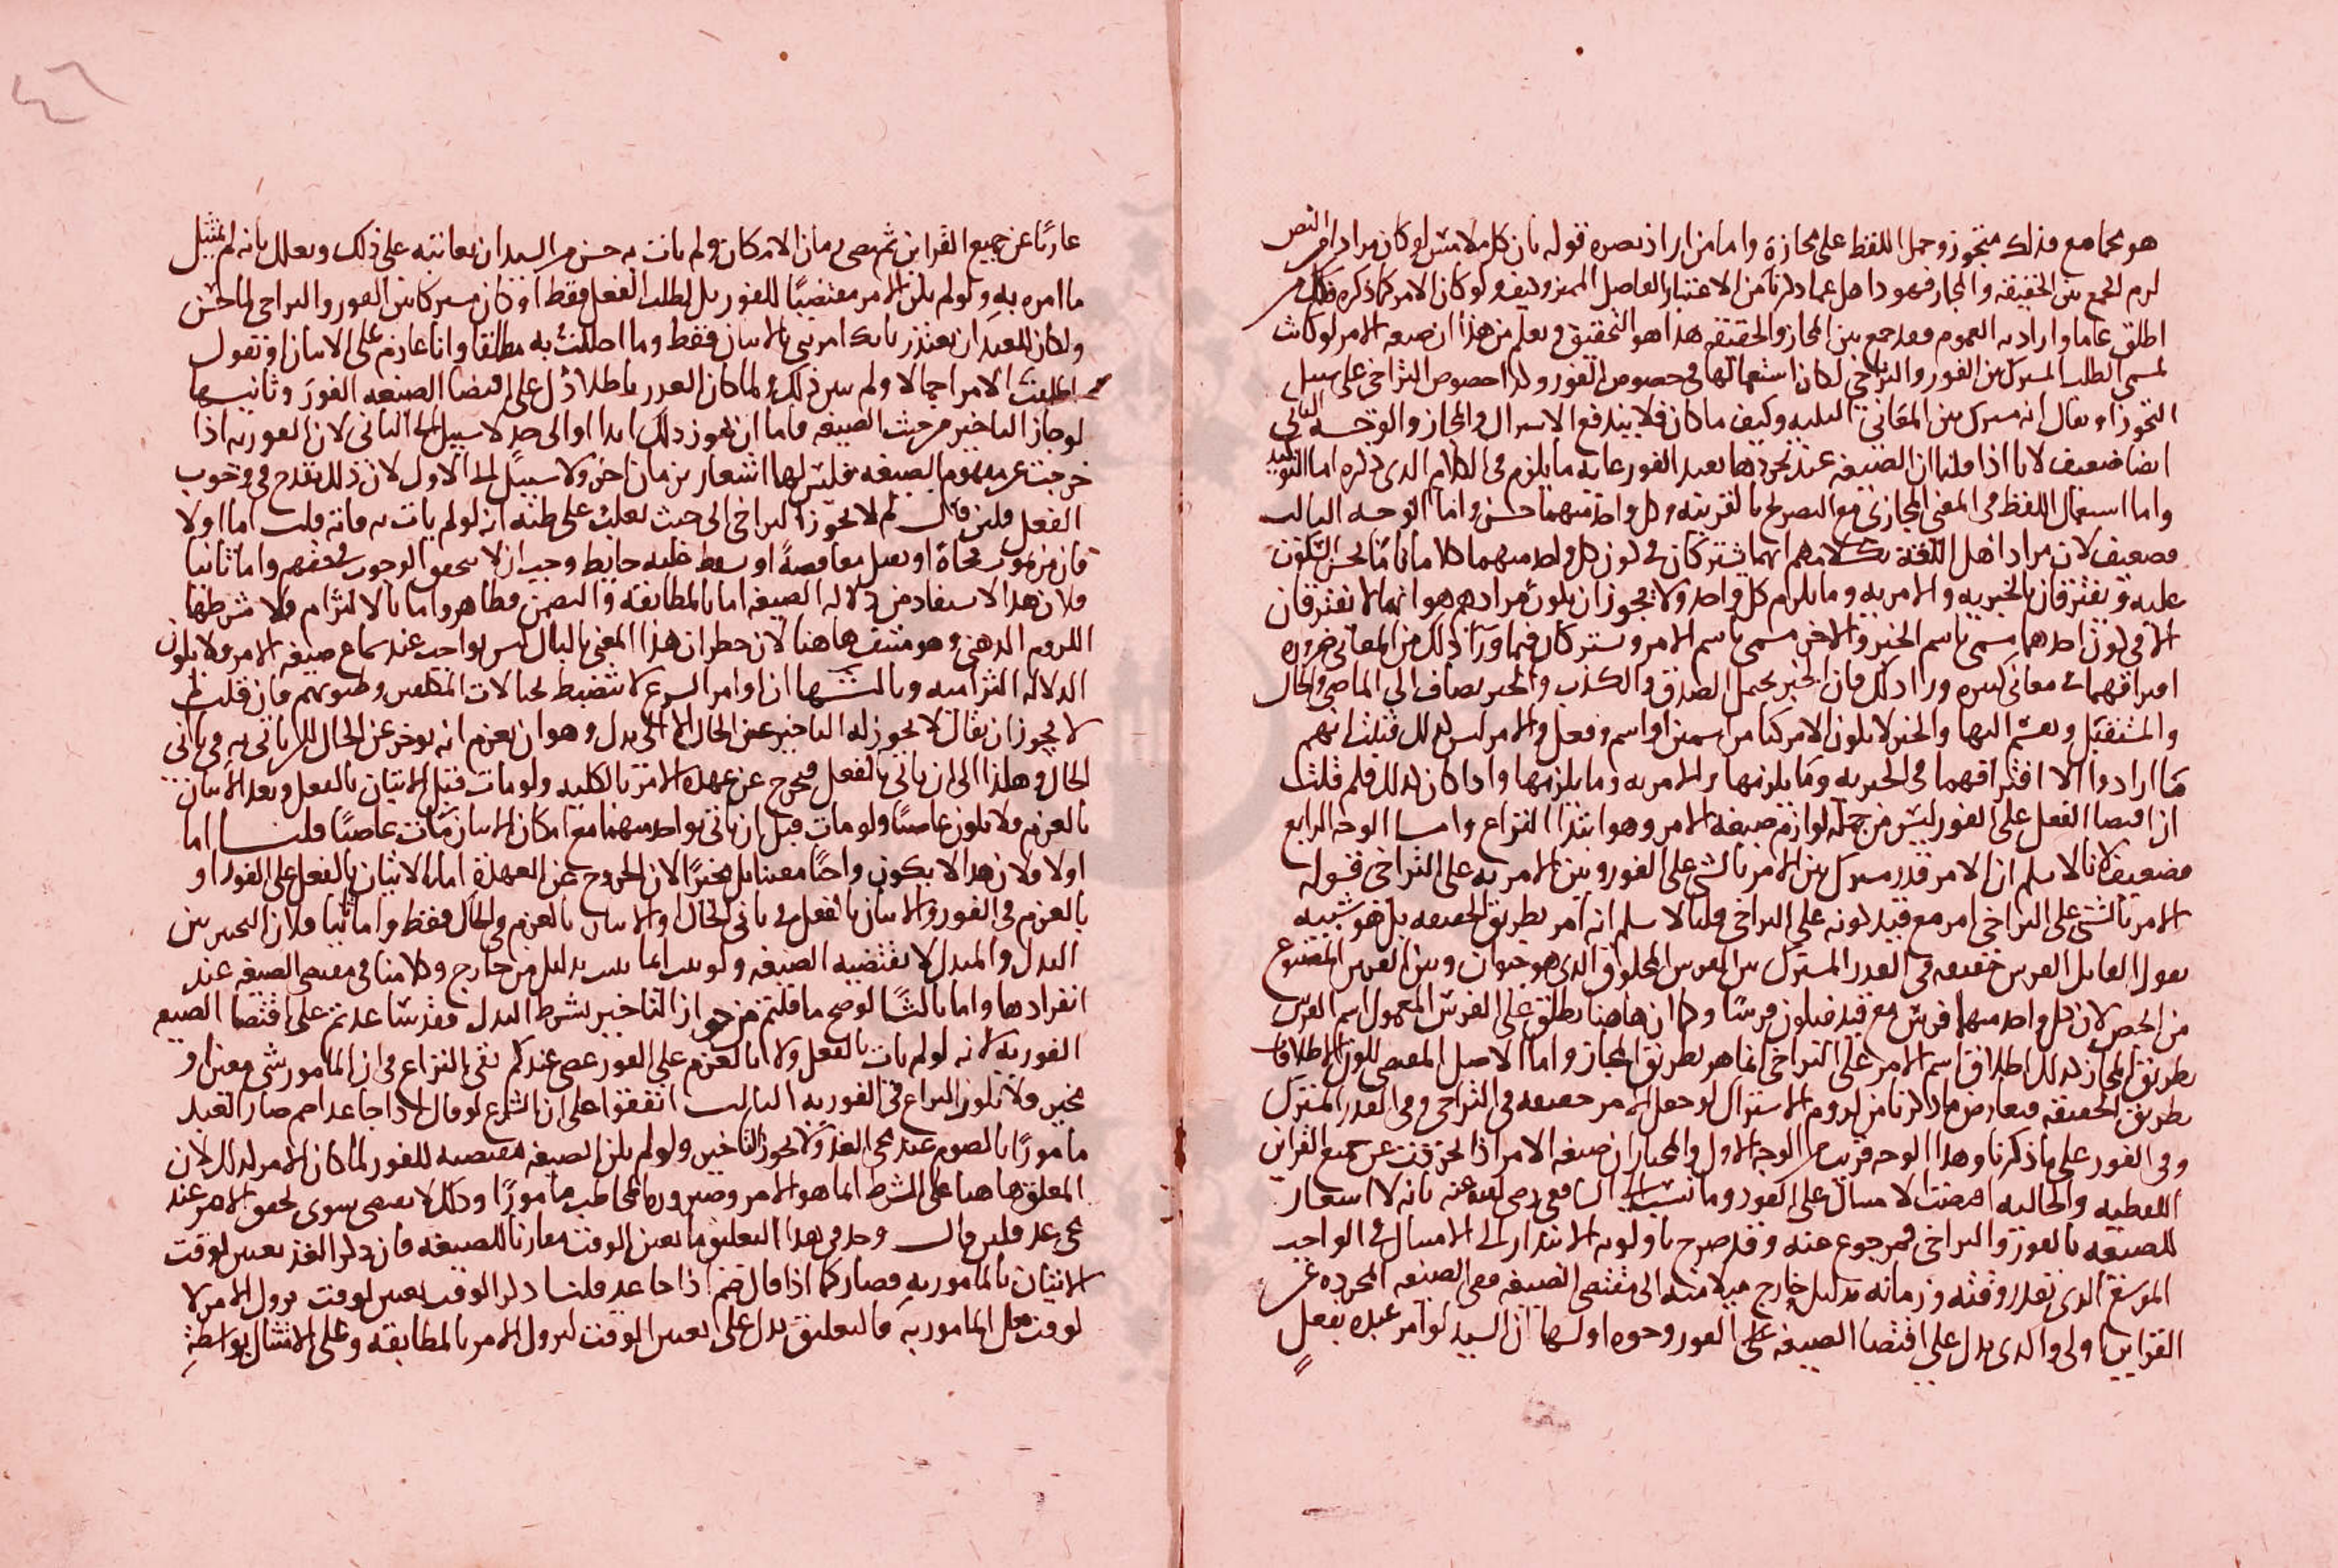 هو مجامع فذلك متجوز وحمل اللفظ على مجازه واما من اراد نصره قوله بان كل ملامس لو كان مرادا من النص
لزم الجمع بين الحقيقه والمجاز فهو داهل عما ذكرنا من الاعتبار الفاصل المميز وكيف ولو كان الامر كما ذكره فكل من
اطلق عاما واراد به العموم فقد جمع بين المجاز والحقيقه هذا هو التحقيق ويعلم من هذا ان صيغه الامر لو كانت
لمسمى الطلب المشترك بين الفور والتراخي لكان استعمالها في خصوص الفور وكذا خصوص التراخي على سبيل
التجوز او يقال انه مشترك بين المعاني الثلثه وكيف ما كان فلا يندفع الاشتراك والمجاز والوجه الثاني
ايضا ضعيف لانا اذا قلنا ان الصيغه عند تجردها تفيد الفور غايه ما يلزم في الكلام الذي ذكره اما التوكيد
واما استعمال اللفظ في المعنى المجازي مع التصريح بالقرينه وكل واحد منهما حسن واما الوجه الثالث
فضعيف لان مراد اهل اللغه بكلامهم انهما يشتركان في كون كل واحد منهما كلاما تاما يحسن السكوت
عليه ويفترقان بالخبريه والامريه وما يلزم كل واحد ولا يجوز ان يكون مرادهم هو انهما لا يفترقان
الا في كون احدهما مسمى باسم الخبر والاخر مسمى باسم الامر ويشتركان فيما ورآ ذلك من المعاني ضروره
افتراقهما في معاني كثيره ورا ذلك فان الخبر يحتمل الصدق والكذب والخبر يضاف الى الماضي والحال
والمستقبل ويقسم اليها والخبر لا يكون الا مركبا من اسمين او اسم وفعل والامر ليس كذلك فثبت انهم
ما ارادوا الا افتراقهما في الخبريه وما يلزمها والامريه وما يلزمها واذا كان كذلك فلم قلت
ان اقتضا الفعل على الفور ليس من جمله لوازم صيغه الامر وهو ابتدا النزاع واما الوجه الرابع
فضعيف لانا لا نسلم ان الامر قدر مشترك بين الامر بالشي على الفور وبين الامر به على التراخي قوله
الامر بالشي على التراخي امر مع قيد كونه على التراخي قلنا لا نسلم انه امر بطريق الحقيقه بل هو شبيه
بقول القايل الفرس حقيقه في القدر المشترك بين الفرس المخلوق الذي هو حيوان وبين الفرس المصنوع
من الجص لان كل واحد منهما فرس مع قيد فيكون فرسا وكما ان هاهنا يطلق على الفرس المعمول اسم الفرس
بطريق المجاز كذلك اطلاق اسم الامر على التراخي انما هو بطريق المجاز واما الاصل المقتضي لكون الاطلاقات
بطريق الحقيقه فيعارض ما ذكرنا من لزوم الاشتراك لو جعل الامر حقيقه في التراخي وفي القدر المشترك
وفي الفور على ما ذكرنا وهذا الوجه قريب من الوجه الاول والمختار ان صيغه الامر اذا تجردت عن جميع القراين
اللفظيه والحاليه اقتضت الامتثال على الفور وما نسب الى الشافعي رضي الله عنه بانه لا اشعار
للصيغه بالفور والتراخي فمرجوع عنه وقد صرح باولويه الابتدار الى الامتثال في الواجب
الموسع الذي تقدر وقته وزمانه بدليل خارج ميلا منه الى مقتضى الصيغه ففي الصيغه المجرده عن
القراين اولى والذي يدل على اقتضا الصيغه على الفور وجوه اولها ان السيد لو امر عبده بفعل
عاريا عن جميع القراين ثم مضى زمان الامكان ولم يات به حسن من السيد ان يعاتبه على ذلك ويعلل بانه لم يمتثل
ما امره به ولو لم يكن الامر مقتضيا للفور بل لطلب الفعل فقط او كان مشتركا بين الفور والتراخي لما حسن
ولكان للعبد ان يعتذر بانك امرتني بالاتيان فقط وما اخللت به مطلقا وانا عازم على الاتيان او تقول
اطلقت الامر اجمالا ولم تبين ذلك ولما كان العذر باطلا دل على اقتضا الصيغه الفور وثانيها
لو جاز التاخير من حيث الصيغه فاما ان يجوز ذلك ابدا او الى حد لا سبيل الى الثاني لان الفوريه اذا
خرجت عن مفهوم الصيغه فليس لها اشعار بزمان اخر ولا سبيل الى الاول لان ذلك يقدح في وجوب
الفعل فلين قال لم لا يجوز التراخي الى حيث يغلب على ظنه انه لو لم يات به فاته قلت اما اولا
فان من يموت فجاة او يقتل مغافصة او يسقط عليه حايط وجب ان لا يتحقق الوجوب في حقهم واما ثانيا
فلان هذا لا يستفاد من دلاله الصيغه اما بالمطابقه والتضمن فظاهر واما بالالتزام فلا شرطها
اللزوم الذهني وهو منتف هاهنا لان خطران هذا المعنى بالبال ليس بواجب عند سماع صيغه الامر فلا يكون
الدلاله التزاميه وثالثها ان اوامر الشرع لا تنضبط لخيالات المكلفين وظنونهم فان قلت لم
لا يجوز ان يقال لا يجوز له التاخير عن الحال الا الى بدل وهو ان يعزم انه يوخر عن الحال لكن ياتي به في ثاني
الحال وهكذا الى ان ياتي بالفعل فيخرج عن عهده الامر بالكليه ولو مات قبل الاتيان بالفعل وبعد الاتيان
بالعزم فلا يكون عاصيا ولو مات قبل ان ياتي بواحد منهما مع امكان الاتيان مات عاصيا قلنا اما
اولا فلان هذا لا يكون واجبا معينا بل مخيرا لان الخروج عن العهده اما بالاتيان بالفعل على الفور او
بالعزم في الفور والاتيان بالفعل في ثاني الحال او الاتيان بالعزم في الحال فقط واما ثانيا فلان التخيير بين
البدل والمبدل لا يقتضيه الصيغه ولو ثبت انما يثبت بدليل من خارج وكلامنا في مقتضى الصيغه عند
انفرادها واما ثالثا لو صح ما قلتم من جواز التاخير بشرط البدل فقد ساعدتم على اقتضا الصيغه
الفوريه لانه لو لم يات بالفعل ولا بالعزم على الفور عصى عندكم بقي النزاع في ان المامور شي معين او
مخير فلا يكون النزاع في الفوريه الثالث اتفقوا على ان الشارع لو قال اذا جا غد صم صار العبد
مامورا بالصوم عند مجي الغد ولا يجوز التاخير ولو لم يكن الصيغه مقتضيه للفور لما كان الامر كذلك لان
المعلق هاهنا على الشرط انما هو الامر وصيروره المخاطب مامورا وذلك لا يقتضي سوى تحقق الامر عند
مجي غد فلين قال وجد في هذا التعليق ما يعين الوقت مقارنا للصيغه فان ذكر الغد تعيين لوقت
الاتيان بالمامور به فصار كما اذا قال صم اذا جا غد قلنا ذكر الوقت تعيين لوقت نزول الامر لا
لوقت فعل المامور به فالتعليق يدل على تعيين الوقت لنزول الامر بالمطابقه وعلى الامتثال بواسطة